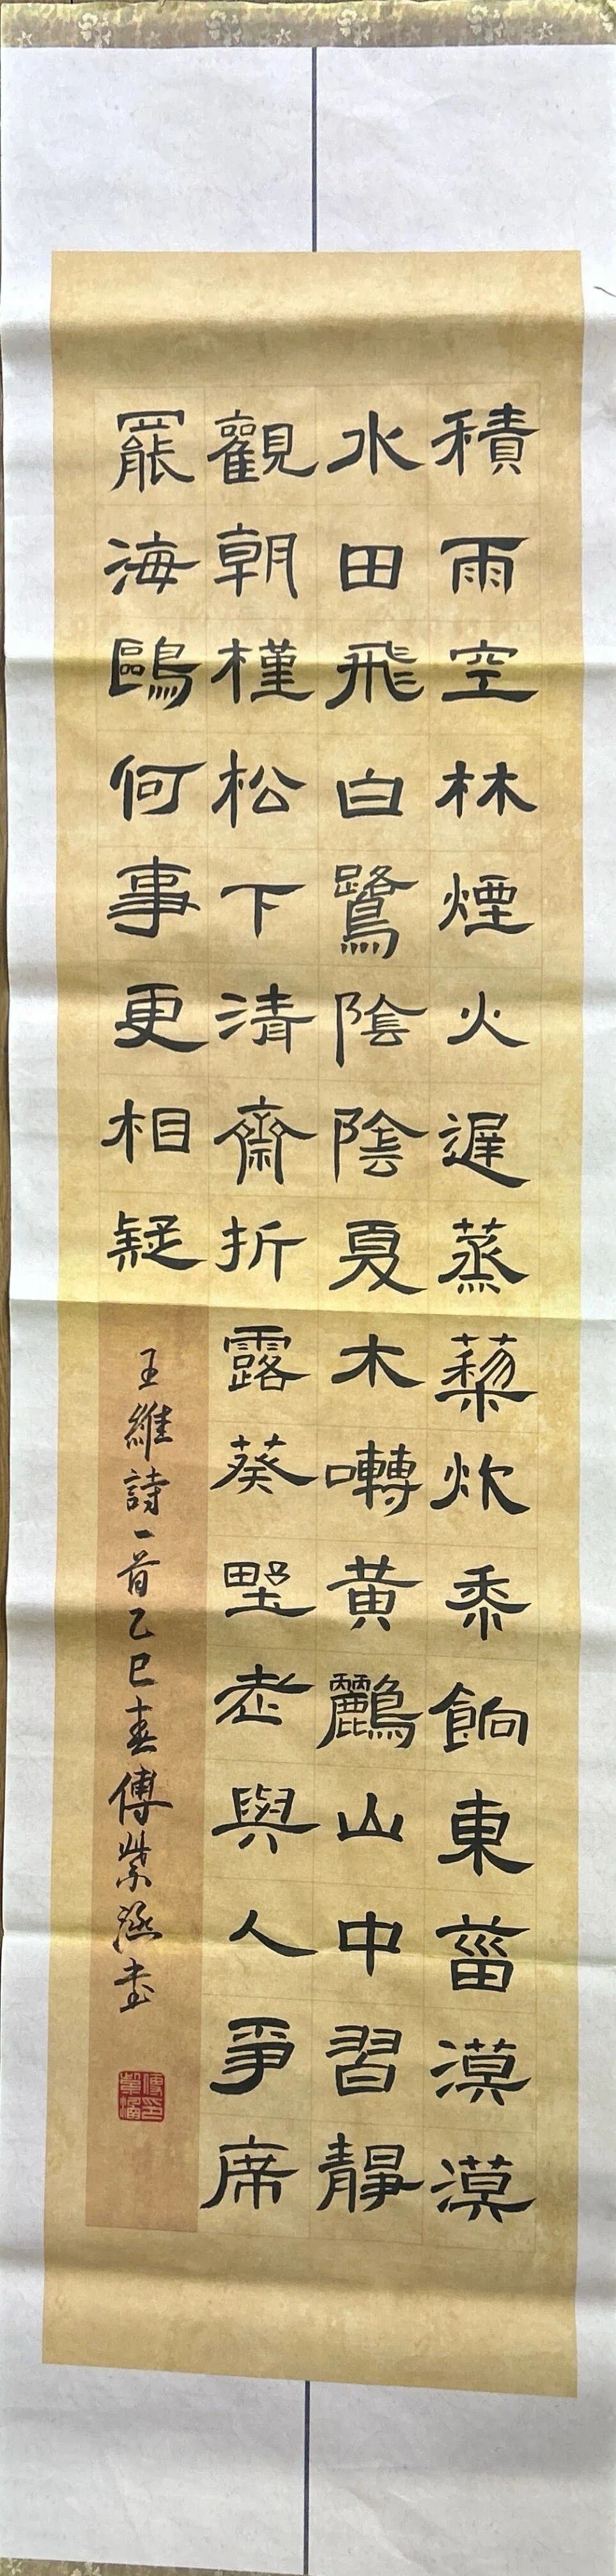 積雨空林煙火遲蒸藜炊黍餉東菑漠漠
水田飛白鷺陰陰夏木囀黃鸝山中習靜
觀朝槿松下清齋折露葵野老與人爭席
罷海鷗何事更相疑
王維詩一首乙巳春傅紫涵書